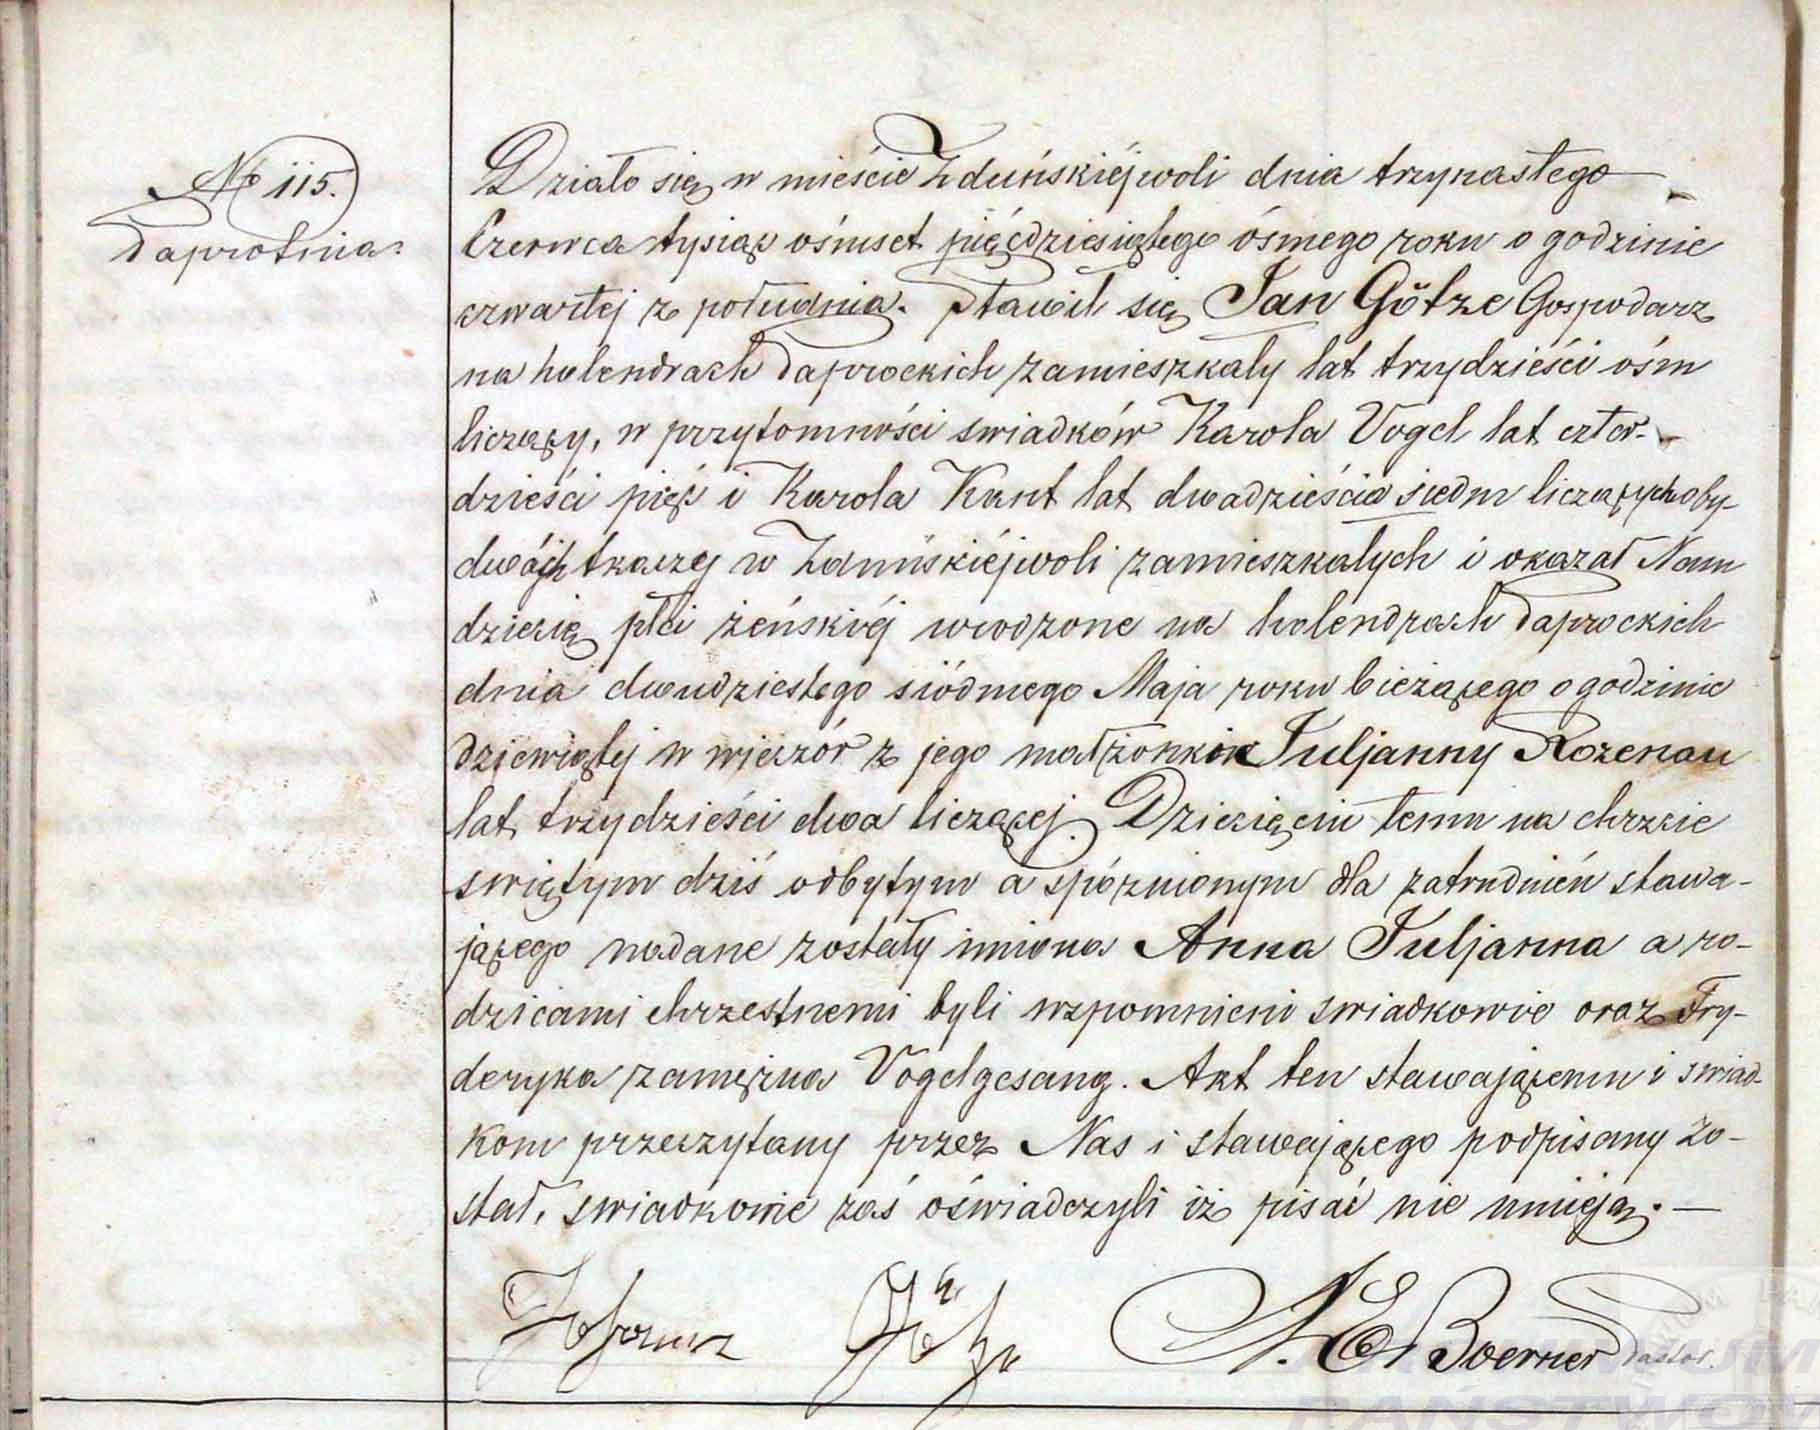 № 115.
Paprotnia.
Działo się w mieście Zduńskiéjwoli dnia trzynastego
Czerwca tysiąc ośmset pięćdziesiątego ósmego roku o godzinie
czwartej z południa. Stawił się Jan Götze Gospodarz
na holendrach Paprockich zamieszkały lat trzydzieści ośm
liczący, w przytomności swiadków Karola Vogel lat czter-
dzieści pięć i Karola Kant lat dwadzieścia siedm liczących oby-
dwóch tkaczy w Zduńskiéjwoli zamieszkałych i okazał Nam
dziecię płci żeńskiéj urodzone na holendrach Paprockich
dnia dwudziestego siódmego Maja roku bieżącego o godzinie
dziewiątej w wieczór z jego małżonki Juljanny Rozenau
lat trzydzieści dwa liczącej. Dziecięciu temu na chrzcie
swiętym dziś odbytym a spóznionym dla zatrudnień stawa-
jącego nadane zostały imiona Anna Juljanna a ro-
dzicami chrzestnemi byli wzpomnieni swiadkowie oraz Fry-
deryka zamężna Vogelgesang. Akt ten stawającemu i swiad-
kom przeczytany przez Nas i stawającego podpisany zo-
stał, swiadkowie zaś oświadczyli iż pisać nie umieją. —
Johann Götze A. E. Boerner Pastor.
ARCHIWUM
PAŃSTWOW